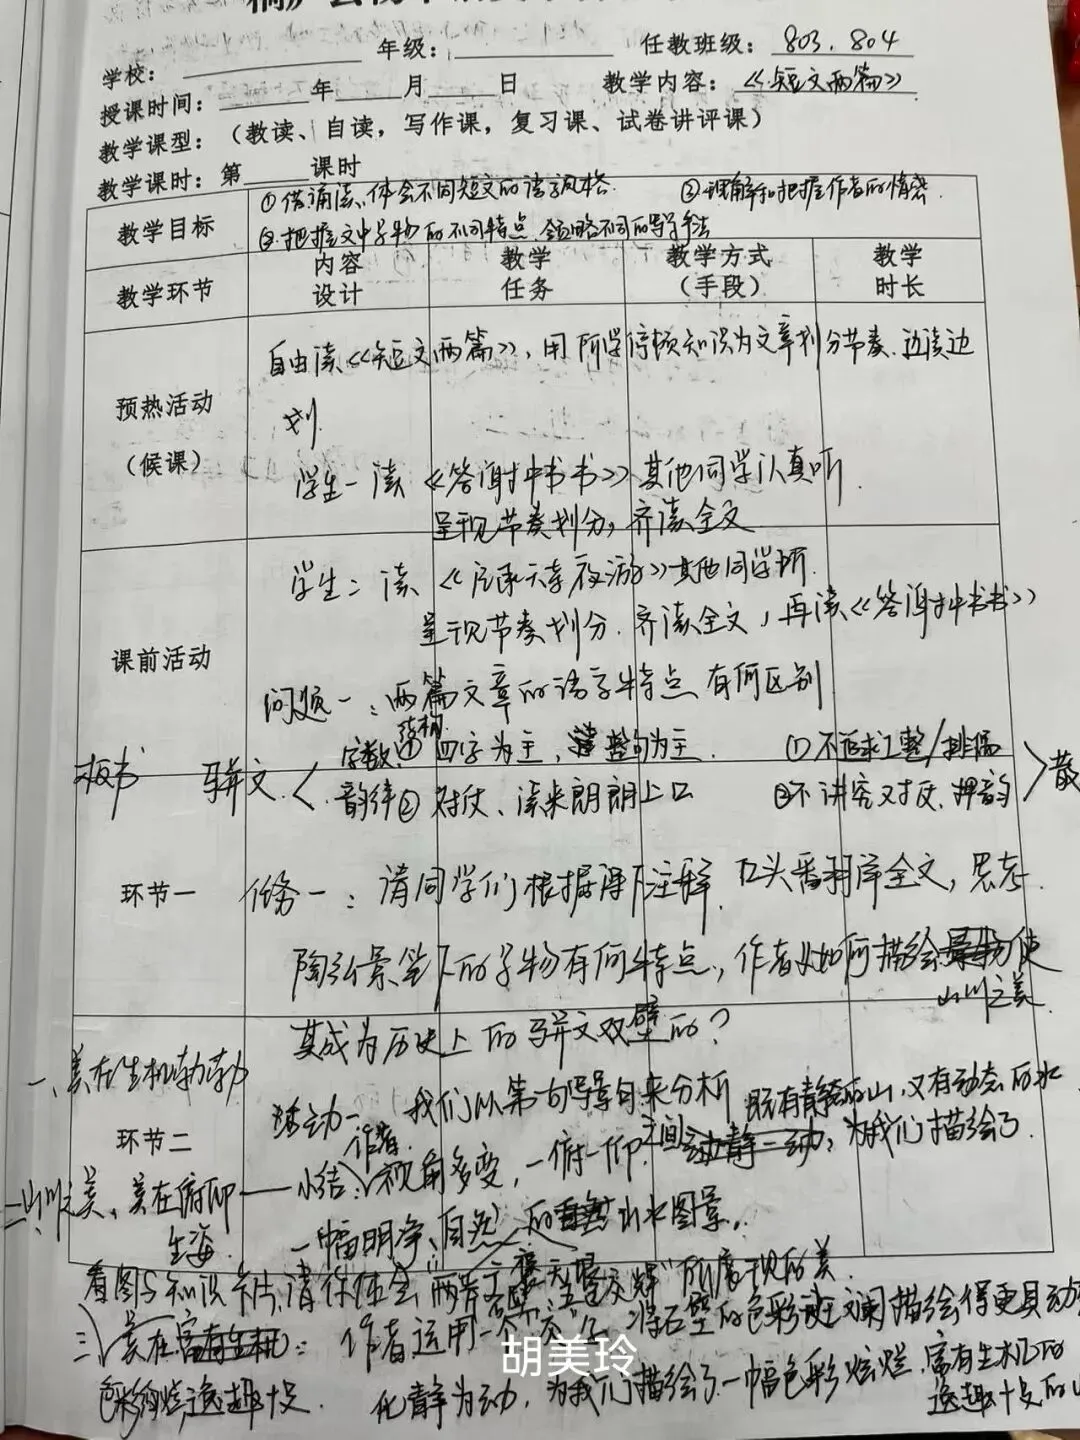 学校： 年级： 任教班级：803、804
授课时间： 年 月 日 教学内容：《短文两篇》
教学课型：（教读、自读，写作课，复习课、试卷讲评课）
教学课时：第 课时
教学目标
①借诵读，体会不同短文的语言风格. ③理解和把握作者的情感.
②把握文中景物的不同特点 领略不同的写景手法
教学环节 内容设计 教学任务 教学方式（手段） 教学时长
预热活动（候课）
自由读《短文两篇》，用所学停顿知识为文章划分节奏. 边读边
划.
学生一读《答谢中书书》其他同学认真听.
呈现节奏划分，齐读全文
课前活动
学生二读《记承天寺夜游》其他同学听.
呈现节奏划分. 齐读全文，再读《答谢中书书》
问题一：两篇文章的语言特点 有何区别
板书 骈文 字数、结构① 四字为主，整句为主. ①不追求工整/排偶
韵律② 对仗、读来朗朗上口 ②不讲究对仗、押韵 散
环节一
任务一：请同学们根据课下注释 口头翻译全文，思考.
陶弘景笔下的景物有何特点，作者如何描绘山川之美使
其成为历史上的骈文双壁的？
一、美在生机勃勃
环节二
活动一：我们以第一句写景句来分析 既有静态的山，又有动态的水
二、山川之美，美在俯仰生姿.
小结：作者视角多变，一俯一仰之间 为我们描绘了
一幅明净、自然的山水图景.
看图与知识卡片，请你体会“两岸石壁，五色交辉”所展现的美.
三、美在
色彩绚烂，逸趣十足.
作者运用一个“交”字 将石壁的色彩斑斓描绘得更具动
化静为动，为我们描绘了一幅色彩绚烂，富有生机的
逸趣十足的
胡美玲